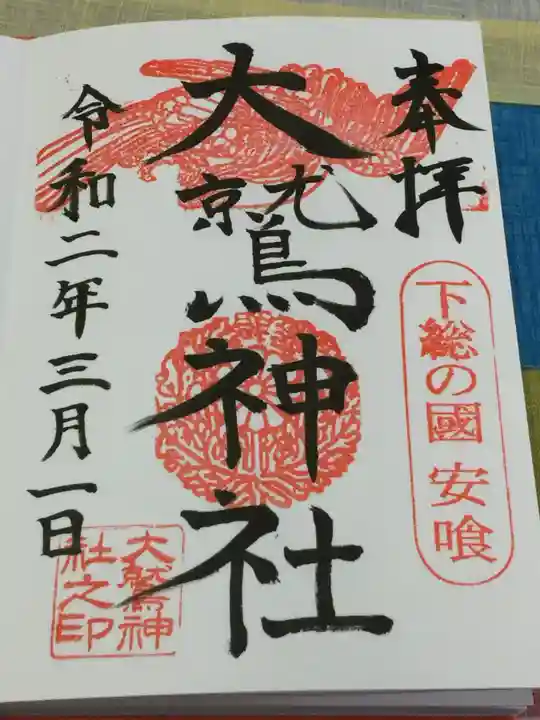 奉拝
下総の國 安喰
大鷲神社
大鷲神
社之印
令和二年三月一日